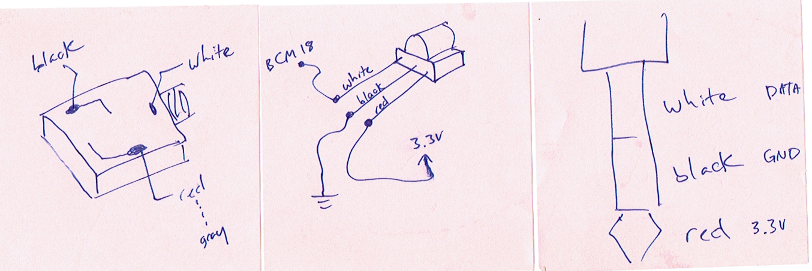 black
white
red
gray
BCM 18
white
black
red
3.3V
white DATA
black GND
red 3.3V